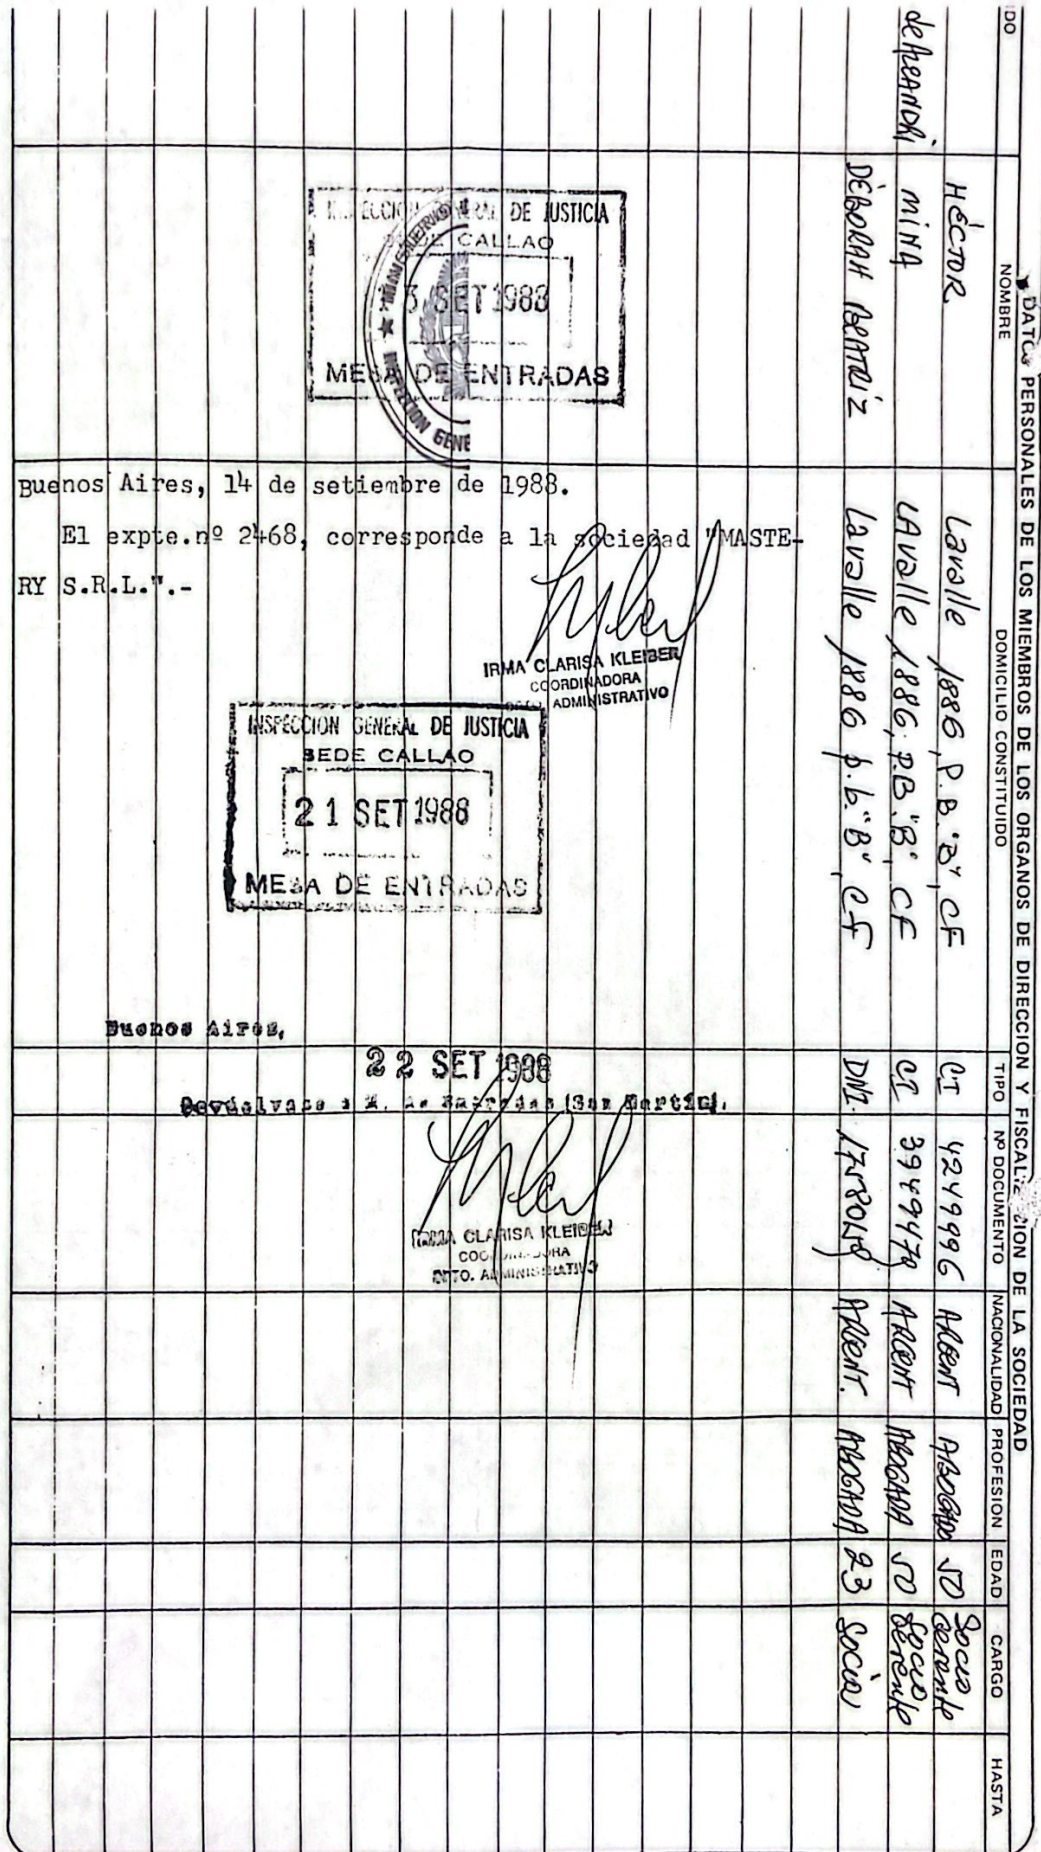 DATOS PERSONALES DE LOS MIEMBROS DE LOS ORGANOS DE DIRECCION Y FISCALIZACION DE LA SOCIEDAD
IDO NOMBRE DOMICILIO CONSTITUIDO TIPO Nº DOCUMENTO NACIONALIDAD PROFESION EDAD CARGO HASTA
HÉCTOR Lavalle 1886, P.B. "B", CF CI 4249996 ARGENT ABOGADO 50 Socio Gerente
de ALEANDRI MINA LAvalle 1886, P.B. "B", CF CI 3949470 ARGENT ABOGADA 50 Socio Gerente
DÉBORAH BEATRIZ Lavalle 1886 p.b. "B", CF DNI. ARGENT. ABOGADA 23 Socia
INSPECCION GENERAL DE JUSTICIA
SEDE CALLAO
3 SET 1988
MESA DE ENTRADAS
★ MINISTERIO
INSPECCION GENE
Buenos Aires, 14 de setiembre de 1988.
El expte.nº 2468, corresponde a la sociedad "MASTE-
RY S.R.L.".-
IRMA CLARISA KLEIBER
COORDINADORA
ADMINISTRATIVO
INSPECCION GENERAL DE JUSTICIA
SEDE CALLAO
21 SET 1988
MESA DE ENTRADAS
Buenos Aires,
22 SET 1988
Devuelvase a M. de Entradas (San Martín).
IRMA CLARISA KLEIBER
COORDINADORA
DPTO. ADMINISTRATIVO